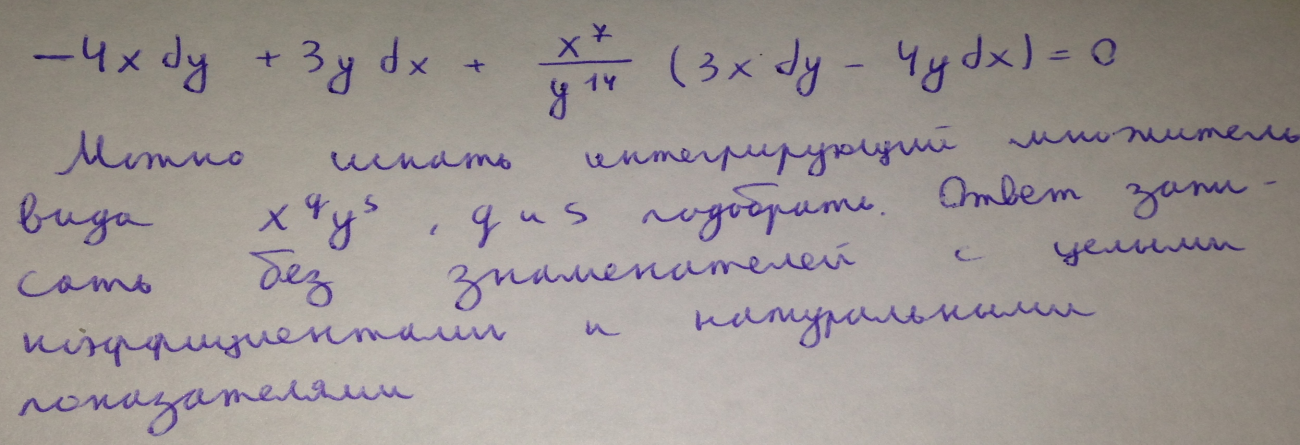 -4x dy + 3y dx + x^7/y^14 (3x dy - 4y dx) = 0
Можно искать интегрирующий множитель
вида x^q y^s, q и s подобрать. Ответ запи-
сать без знаменателей с целыми
коэффициентами и натуральными
показателями